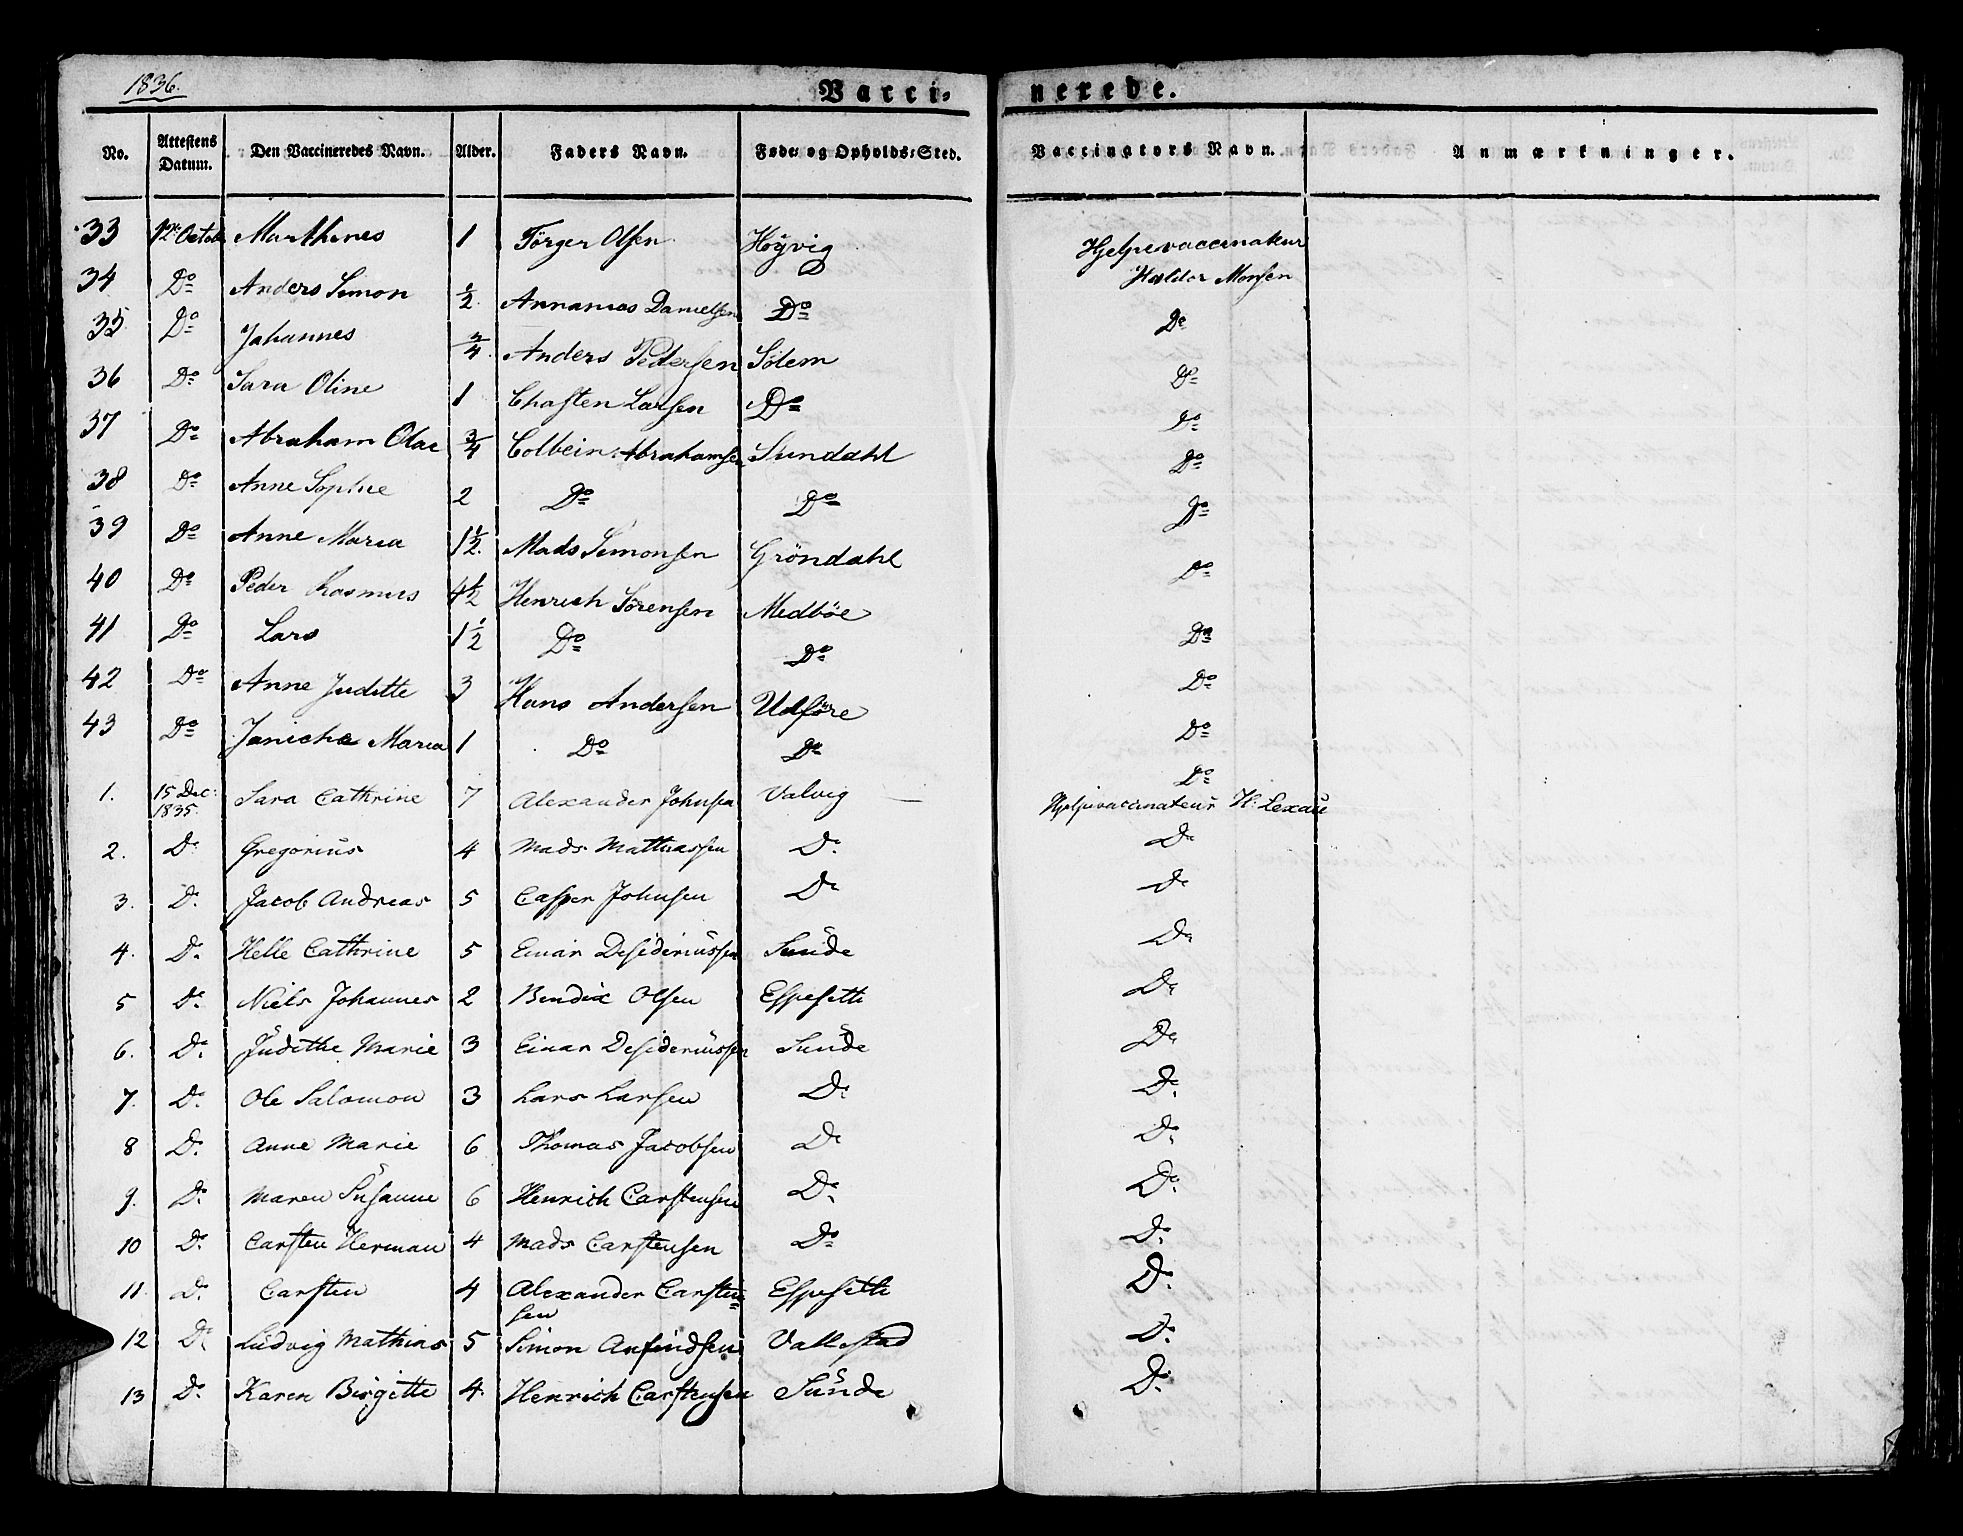 1836.
Vacci- nerede.
No. Attestens Datum. Den Vaccineredes Navn. Alder. Faders Navn. Føde- og Opholds-Sted. Vaccinators Navn. Anmærkninger.
33 12te Octob Marthines 1 Törger Olsen Höyvig Hjelpevaccinateur
Haldor Monsen
34 Do Anders Simon 1/2 Annanias Danielsen Do Do
35 Do Johannes 3/4 Anders Pedersen Solem Do
36 Do Sara Oline 1 Chasten Larsen Do Do
37 Do Abraham Olai 3/4 Colbein Abrahamsen Sundahl Do
38 Do Anne Sophie 2 Do Do Do
39 Do Anne Maria 1 1/2 Mads Simonsen Gröndahl Do
40 Do Peder Rasmus 4 1/2 Henrich Sörensen Medböe Do
41 Do Lars 1 1/2 Do Do Do
42 Do Anne Juditte 3 Hans Andersen Udföre Do
43 Do Janicha Maria 1 Do Do Do
1. 15 Dec: 1835. Sara Cathrine 7 Alexander Johnsen Valvig Hjelpevaccinateur H. Lexau
2. Do Gregorius 4 Mads Mathiassen Do Do
3. Do Jacob Andreas 5 Casper Johnsen Do Do
4. Do Helle Cathrine 5 Einar Desideriussen Sunde Do
5 Do Niels Johannes 2 Bendix Olsen Espesette Do
6. Do Judithe Marie 3 Einar Desideriussen Sunde Do
7. Do Ole Salomon 3 Lars Larsen Do Do
8 Do Anne Marie 6 Thomas Jacobsen Do Do
9. Do Maren Susanne 6 Henrich Carstensen Do Do
10 Do Carsten Herman 4 Mads Carstensen Do Do
11. Do Carsten 4 Alexander Carsten=
sen Espesette Do
12 Do Ludvig Mathias 5 Simon Anfindsen Vallestad Do
13 Do Karen Birgitte 4. Henrich Carstensen Sunde Do